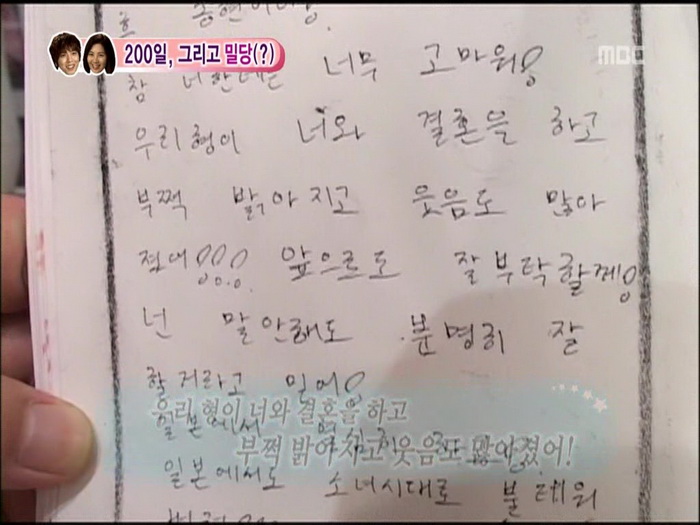 종현이이당
200일, 그리고 밀당(?)
MBC
참 너한테는 너무 고마워!
우리형이 너와 결혼을 하고
부쩍 밝아지고 웃음도 많아
졌대!!! 앞으로도 잘부탁할께!
넌 말안해도 분명히 잘
할거라고 믿어!
우리 형이 너와 결혼을 하고
부쩍 밝아지고 웃음도 많아졌어!
일본에서도 소녀시대로 불태워